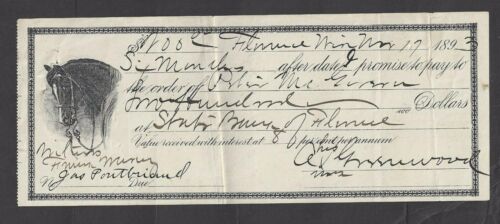 $200 Florence Wis Nov 17 1893
Six Months after date I promise to pay to
the order of Mc Govern
Two Hundred 100 Dollars
at State Bank of Florence
Value received with interest at 8 per cent per annum
his
Greenwood
Witness
mark
Jas Pontbriand
No. Due